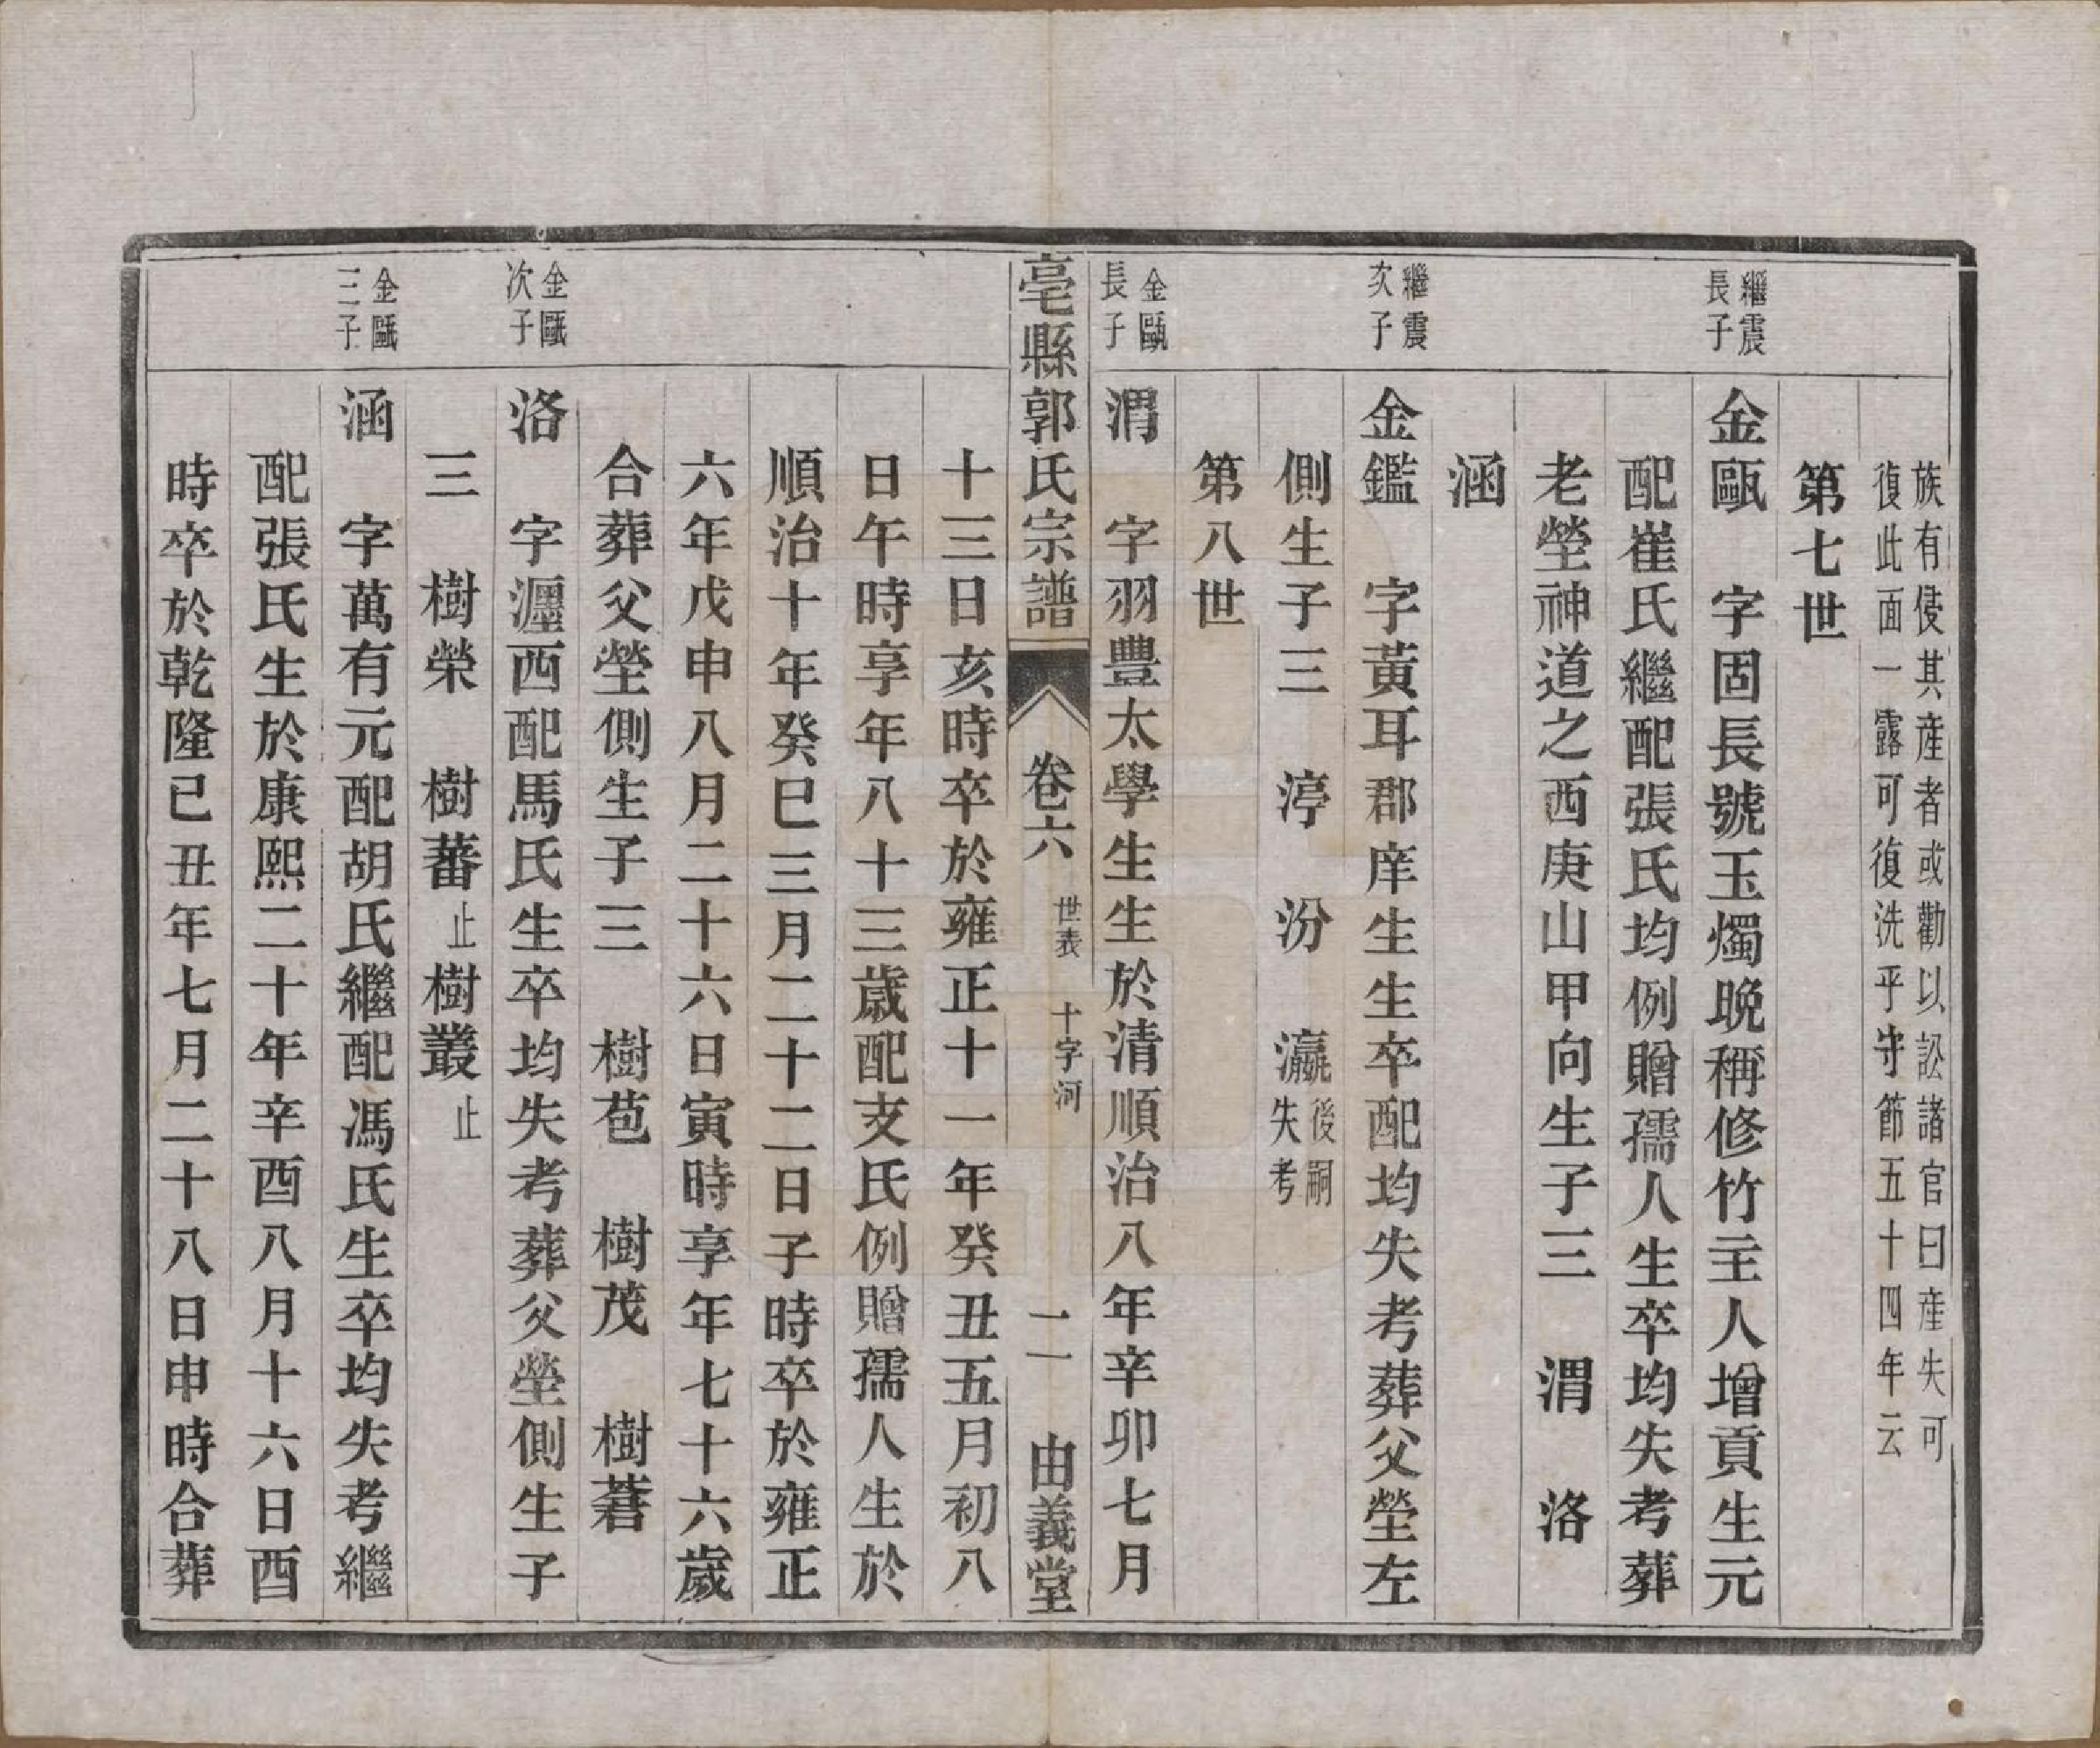 族有侵其産者或勸以訟諸官曰産失可
復此面一露可復洗乎守節五十四年云
第七世
繼震
長子
金甌　字固長號玉燭晚稱修竹主人增貢生元
配崔氏繼配張氏均例贈孺人生卒均失考葬
老塋神道之西庚山甲向生子三　渭　洛
涵
繼震
次子
金鑑　字黃耳郡庠生生卒配均失考葬父塋左
側生子三　渟　汾　瀛
後嗣
失考
第八世
金甌
長子
渭　字羽豐太學生生於清順治八年辛卯七月
亳縣郭氏宗譜　卷六　世表　十字河　二一　由義堂
十三日亥時卒於雍正十一年癸丑五月初八
日午時享年八十三歲配支氏例贈孺人生於
順治十年癸巳三月二十二日子時卒於雍正
六年戊申八月二十六日寅時享年七十六歲
合葬父塋側生子三　樹苞　樹茂　樹蒼
金甌
次子
洛　字瀍西配馬氏生卒均失考葬父塋側生子
三　樹榮　樹蕃止　樹叢止
金甌
三子
涵　字萬有元配胡氏繼配馮氏生卒均失考繼
配張氏生於康熙二十年辛酉八月十六日酉
時卒於乾隆己丑年七月二十八日申時合葬